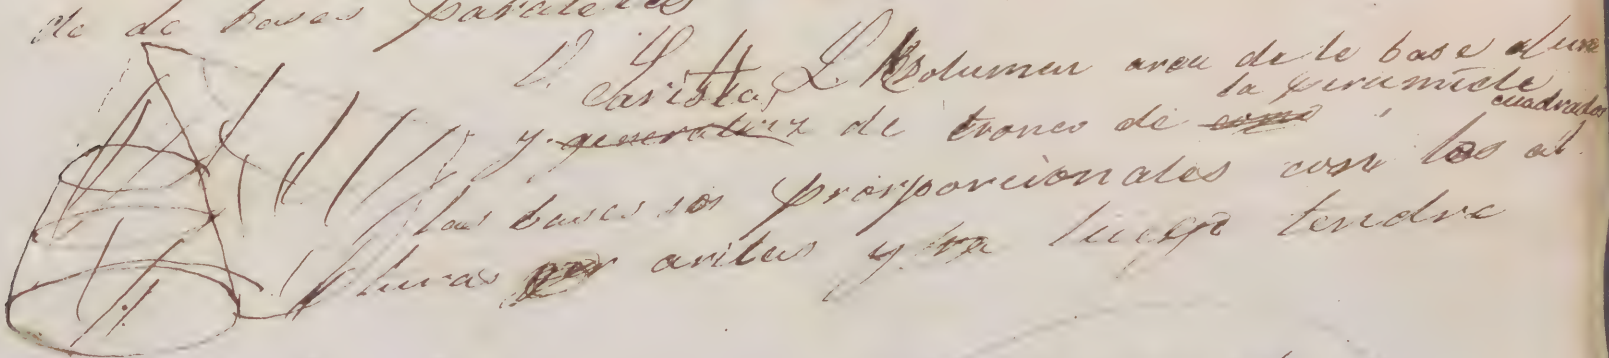 de bases paralelas
arista, volumen area de la base altura
la piramide
y generatriz de tronco de cono cuadrados
las bases son proporcionales con los al
turas aritas y luego tendra